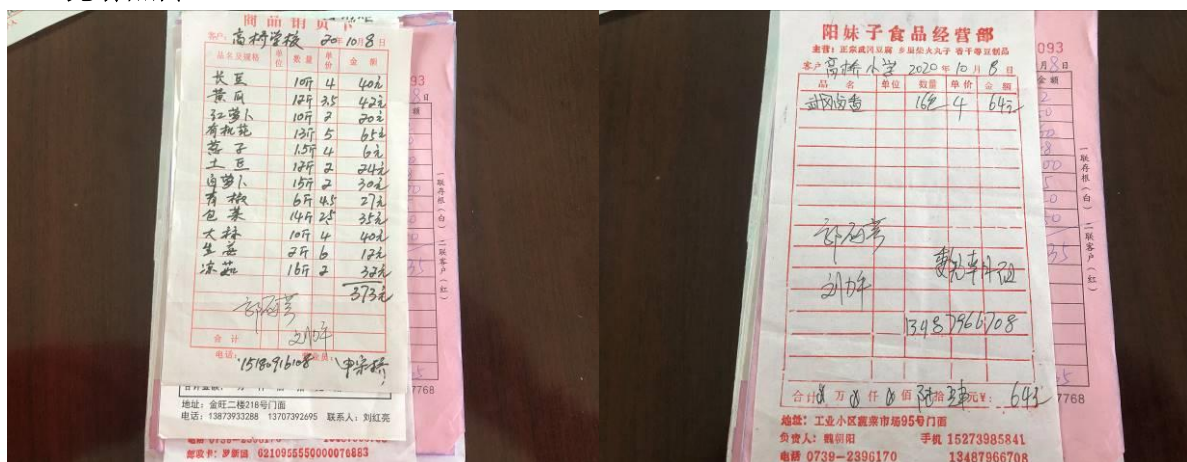 商品销货卡
客户: 高桥学校 20年10月8日
品名及规格 单位 数量 单价 金额
长豆 10斤 4 40元
黄瓜 12斤 3.5 42元
红萝卜 10斤 2 20元
有机花 13斤 5 65元
葱子 1.5斤 4 6元
土豆 12斤 2 24元
白萝卜 15斤 2 30元
青椒 6斤 4.5 27元
包菜 14斤 2.5 35元
大林 10斤 4 40元
生姜 2斤 6 12元
冻菇 16斤 2 32元
373元
合计
电话: 15180916108 营业员: 申宗桥
地址: 金旺二楼218号门面
电话: 13873933288 13707392695 联系人: 刘红亮
电话 0739-2396170
邮政卡: 罗新国 6210955550000076883
一联存根(白) 二联客户(红)
7768
阳妹子食品经营部
主营: 正宗武冈豆腐 乡里柴火丸子 香干等豆制品
客户 高桥小学 2020年10月8日
品名 单位 数量 单价 金额
武冈卤香 16包 4 64元
13487966708
合计 万 仟 佰 陆拾 肆元 ¥: 64元
地址: 工业小区蔬菜市场95号门面
负责人: 魏朝阳 手机 15273985841
电话 0739-2396170 13487966708
093
月8日
金额
一联存根(白) 二联客户(红)
7768